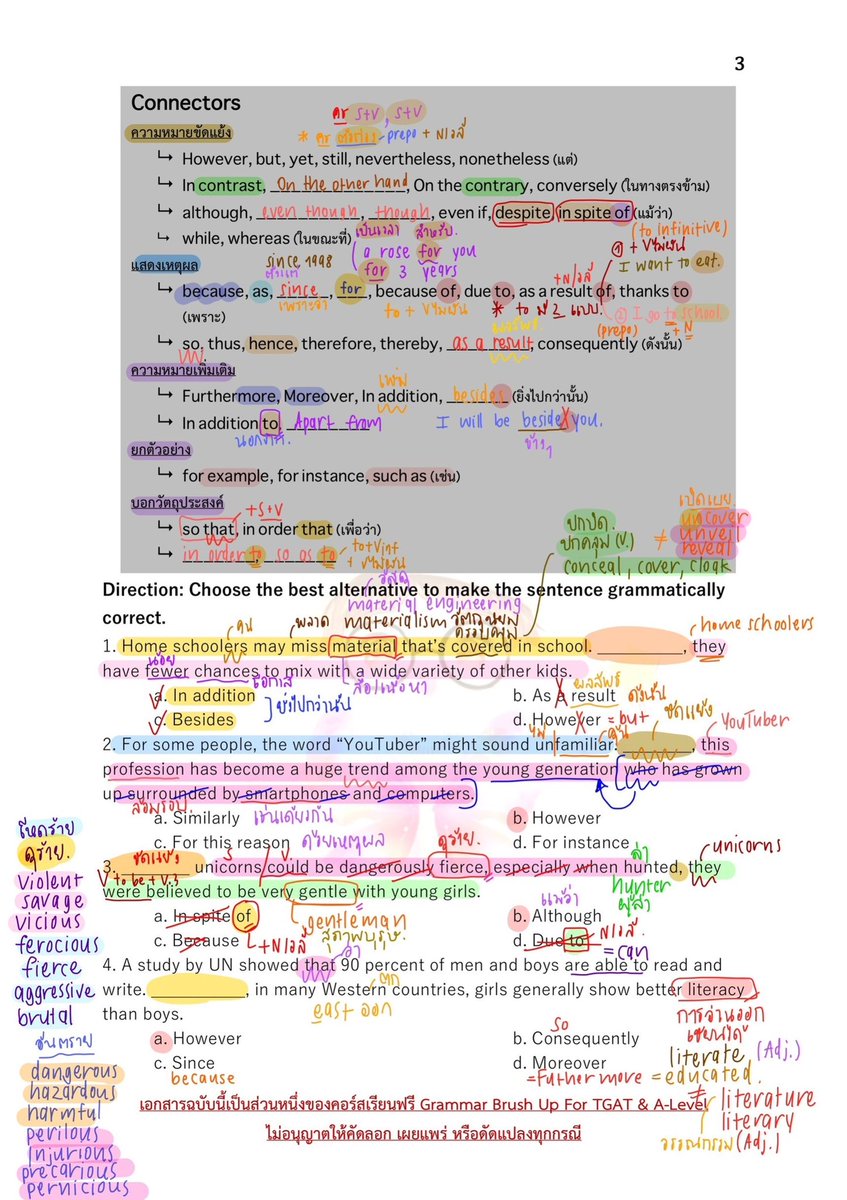 3
Connectors
คร S+V , S+V
ความหมายขัดแย้ง
* คร ตัวต่อง - prepo + N/วลี
↳ However, but, yet, still, nevertheless, nonetheless (แต่)
↳ In contrast, On the other hand, On the contrary, conversely (ในทางตรงข้าม)
↳ although, even though, though, even if, despite in spite of (แม้ว่า)
↳ while, whereas (ในขณะที่)
เป็นเวลา สำหรับ.
(to infinitive)
a rose for you
① + Vไม่ผัน
แสดงเหตุผล
since 1998
for 3 years
I want to eat.
ตั้งแต่
+N/วลี
↳ because, as, since, for, because of, due to, as a result of, thanks to
(เพราะ)
เพราะว่า
to + Vไม่ผัน
* to มี 2 แบบ.
② I go to school.
(prepo)
+ N
ผลลัพธ์
↳ so, thus, hence, therefore, thereby, as a result, consequently (ดังนั้น)
ความหมายเพิ่มเติม
เพิ่ม
↳ Furthermore, Moreover, In addition, besides (ยิ่งไปกว่านั้น)
↳ In addition to, Apart from
I will be besides you.
นอกจาก.
ข้างๆ
ยกตัวอย่าง
↳ for example, for instance, such as (เช่น)
บอกวัตถุประสงค์
+S+V
↳ so that, in order that (เพื่อว่า)
↳ in order to, so as to
to+Vinf
+ Vไม่ผัน
ปกปิด.
ปกคลุม (v.)
≠
เปิดเผย.
uncover
unveil
reveal
conceal, cover, cloak
Direction: Choose the best alternative to make the sentence grammatically
correct.
วัสดุ
material engineering
คน
พลาด
materialism วัตถุนิยม
ครอบคลุม
home schoolers
1. Home schoolers may miss material that's covered in school. __________, they
have fewer chances to mix with a wide variety of other kids.
น้อย
โอกาส
สื่อ/เนื้อหา
a. In addition
b. As a result
ผลลัพธ์
ดังนั้น
c. Besides
ยิ่งไปกว่านั้น
d. However
= but
ขัดแย้ง
YouTuber
ไม่
คุ้น
2. For some people, the word “YouTuber” might sound unfamiliar. __________, this
profession has become a huge trend among the young generation who has grown
up surrounded by smartphones and computers.
ล้อมรอบ
a. Similarly
เช่นเดียวกัน
b. However
c. For this reason
ด้วยเหตุผล
d. For instance
ดุร้าย.
ล่า
unicorns
ขัดแย้ง
S
V.
3. __________ unicorns could be dangerously fierce, especially when hunted, they
V to be + V.3
were believed to be very gentle with young girls.
hunter
ผู้ล่า
a. In spite of
gentleman
สุภาพบุรุษ.
แม้ว่า
b. Although
c. Because
+N/วลี
d. Due to
N/วลี
ว่า
= can
4. A study by UN showed that 90 percent of men and boys are able to read and
write. __________, in many Western countries, girls generally show better literacy
ตก
than boys.
east ออก
การอ่านออก
เขียนได้
a. However
so
b. Consequently
literate (Adj.)
c. Since
because
d. Moreover
= Futher more
= educated.
≠ literature
literary
วรรณกรรม (Adj.)
โหดร้าย
ดุร้าย.
violent
savage
vicious
ferocious
fierce
aggressive
brutal
อันตราย
dangerous
hazardous
harmful
perilous
Injurious
precarious
pernicious
เอกสารฉบับนี้เป็นส่วนหนึ่งของคอร์สเรียนฟรี Grammar Brush Up For TGAT & A-Level
ไม่อนุญาตให้คัดลอก เผยแพร่ หรือดัดแปลงทุกกรณี